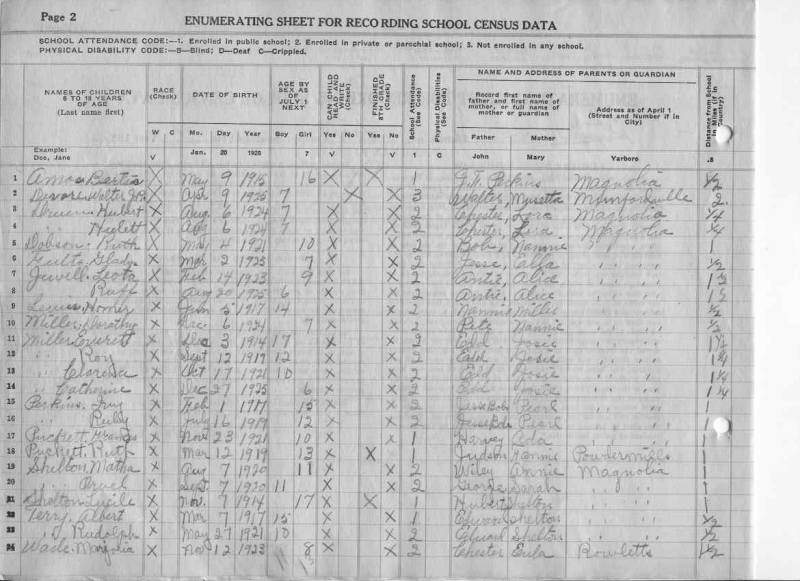 Page 2
ENUMERATING SHEET FOR RECORDING SCHOOL CENSUS DATA
SCHOOL ATTENDANCE CODE:—1. Enrolled in public school; 2. Enrolled in private or parochial school; 3. Not enrolled in any school.
PHYSICAL DISABILITY CODE:—B—Blind; D—Deaf C—Crippled.
NAMES OF CHILDREN 6 TO 18 YEARS OF AGE (Last name first)
RACE (Check)
DATE OF BIRTH
AGE BY SEX AS OF JULY 1 NEXT
CAN CHILD READ AND WRITE (Check)
FINISHED 8TH GRADE (Check)
School Attendance (See Code)
Physical Disabilities (See Code)
NAME AND ADDRESS OF PARENTS OR GUARDIAN
Record first name of father and first name of mother, or full name of mother or guardian
Address as of April 1 (Street and Number if in City)
Distance from School in Miles (if in Country)
W C Mo. Day Year Boy Girl Yes No Yes No Father Mother
Example: Doe, Jane V Jan. 20 1920 7 V V 1 C John Mary Yarboro .8
1 Bertie X May 9 1915 16 X X 1 J.T. Perkins Magnolia 1/2
2 Walter X 9 1925 7 X X 3 Walter, Munfordville 2
3 Hubert X Aug 6 1924 7 X X 2 Chester, Lora Magnolia 1/4
4 X Aug 6 1924 7 X X 2 Chester, Magnolia 1/4
5 Dobson, Ruth X Mar 4 1921 10 X X 2 Bob, Nannie " " " 1
6 X Mar 2 1923 7 X X 2 Jesse, " " " 1/2
7 Jewell, Leota X Feb 14 1923 9 X X 2 Alice " " " 1 1/2
8 X Aug 20 1925 6 X X 2 Alice " " " 1 1/2
9 Homer X 5 1917 14 X X 2 Nannie Miller " " " 1/2
10 Miller, Dorothy X Dec 6 1924 7 X X 2 Pete Nannie " " " 1/2
11 Miller, Everett X Dec 3 1914 17 X X 2 Edd Josie " " " 1 1/2
12 " Roy X Sept 12 1919 12 X X 2 Edd Josie " " " 1 1/4
13 " Clarissa X Oct 17 1921 10 X X 2 Edd Josie " " " 1 1/4
14 " Catherine X Dec 27 1925 6 X X 2 Edd Josie " " " 1 1/4
15 Perkins, X Feb 1 1917 15 X X 2 Jesse Bob Pearl " " " 1
16 " Ruby X July 16 1919 12 X X 2 Jesse Bob Pearl " " " 1
17 Puckett, Frances X Nov 23 1921 10 X X 1 Harvey Leda " " 1
18 Puckett, Ruth X Mar 12 1919 13 X X 1 Judson Nannie Powdermills 1
19 Shelton, Matha X Aug 7 1920 11 X X 2 Wiley Annie Magnolia 1
20 " Orvel X Sept 7 1920 11 X X 2 George Sarah " " " 1
21 Shelton, Lucile X Nov. 7 1914 17 X X 1 Hubert Shelton " " " 1
22 Terry, Albert X Mar 7 1917 15 X X 1 Edward Shelton " " " 1/2
23 " Rudolph X May 27 1921 10 X X 2 Edward Shelton " " " 1/2
24 Wade, X Nov 12 1923 8 X X 2 Chester Eula Rowletts 1/2